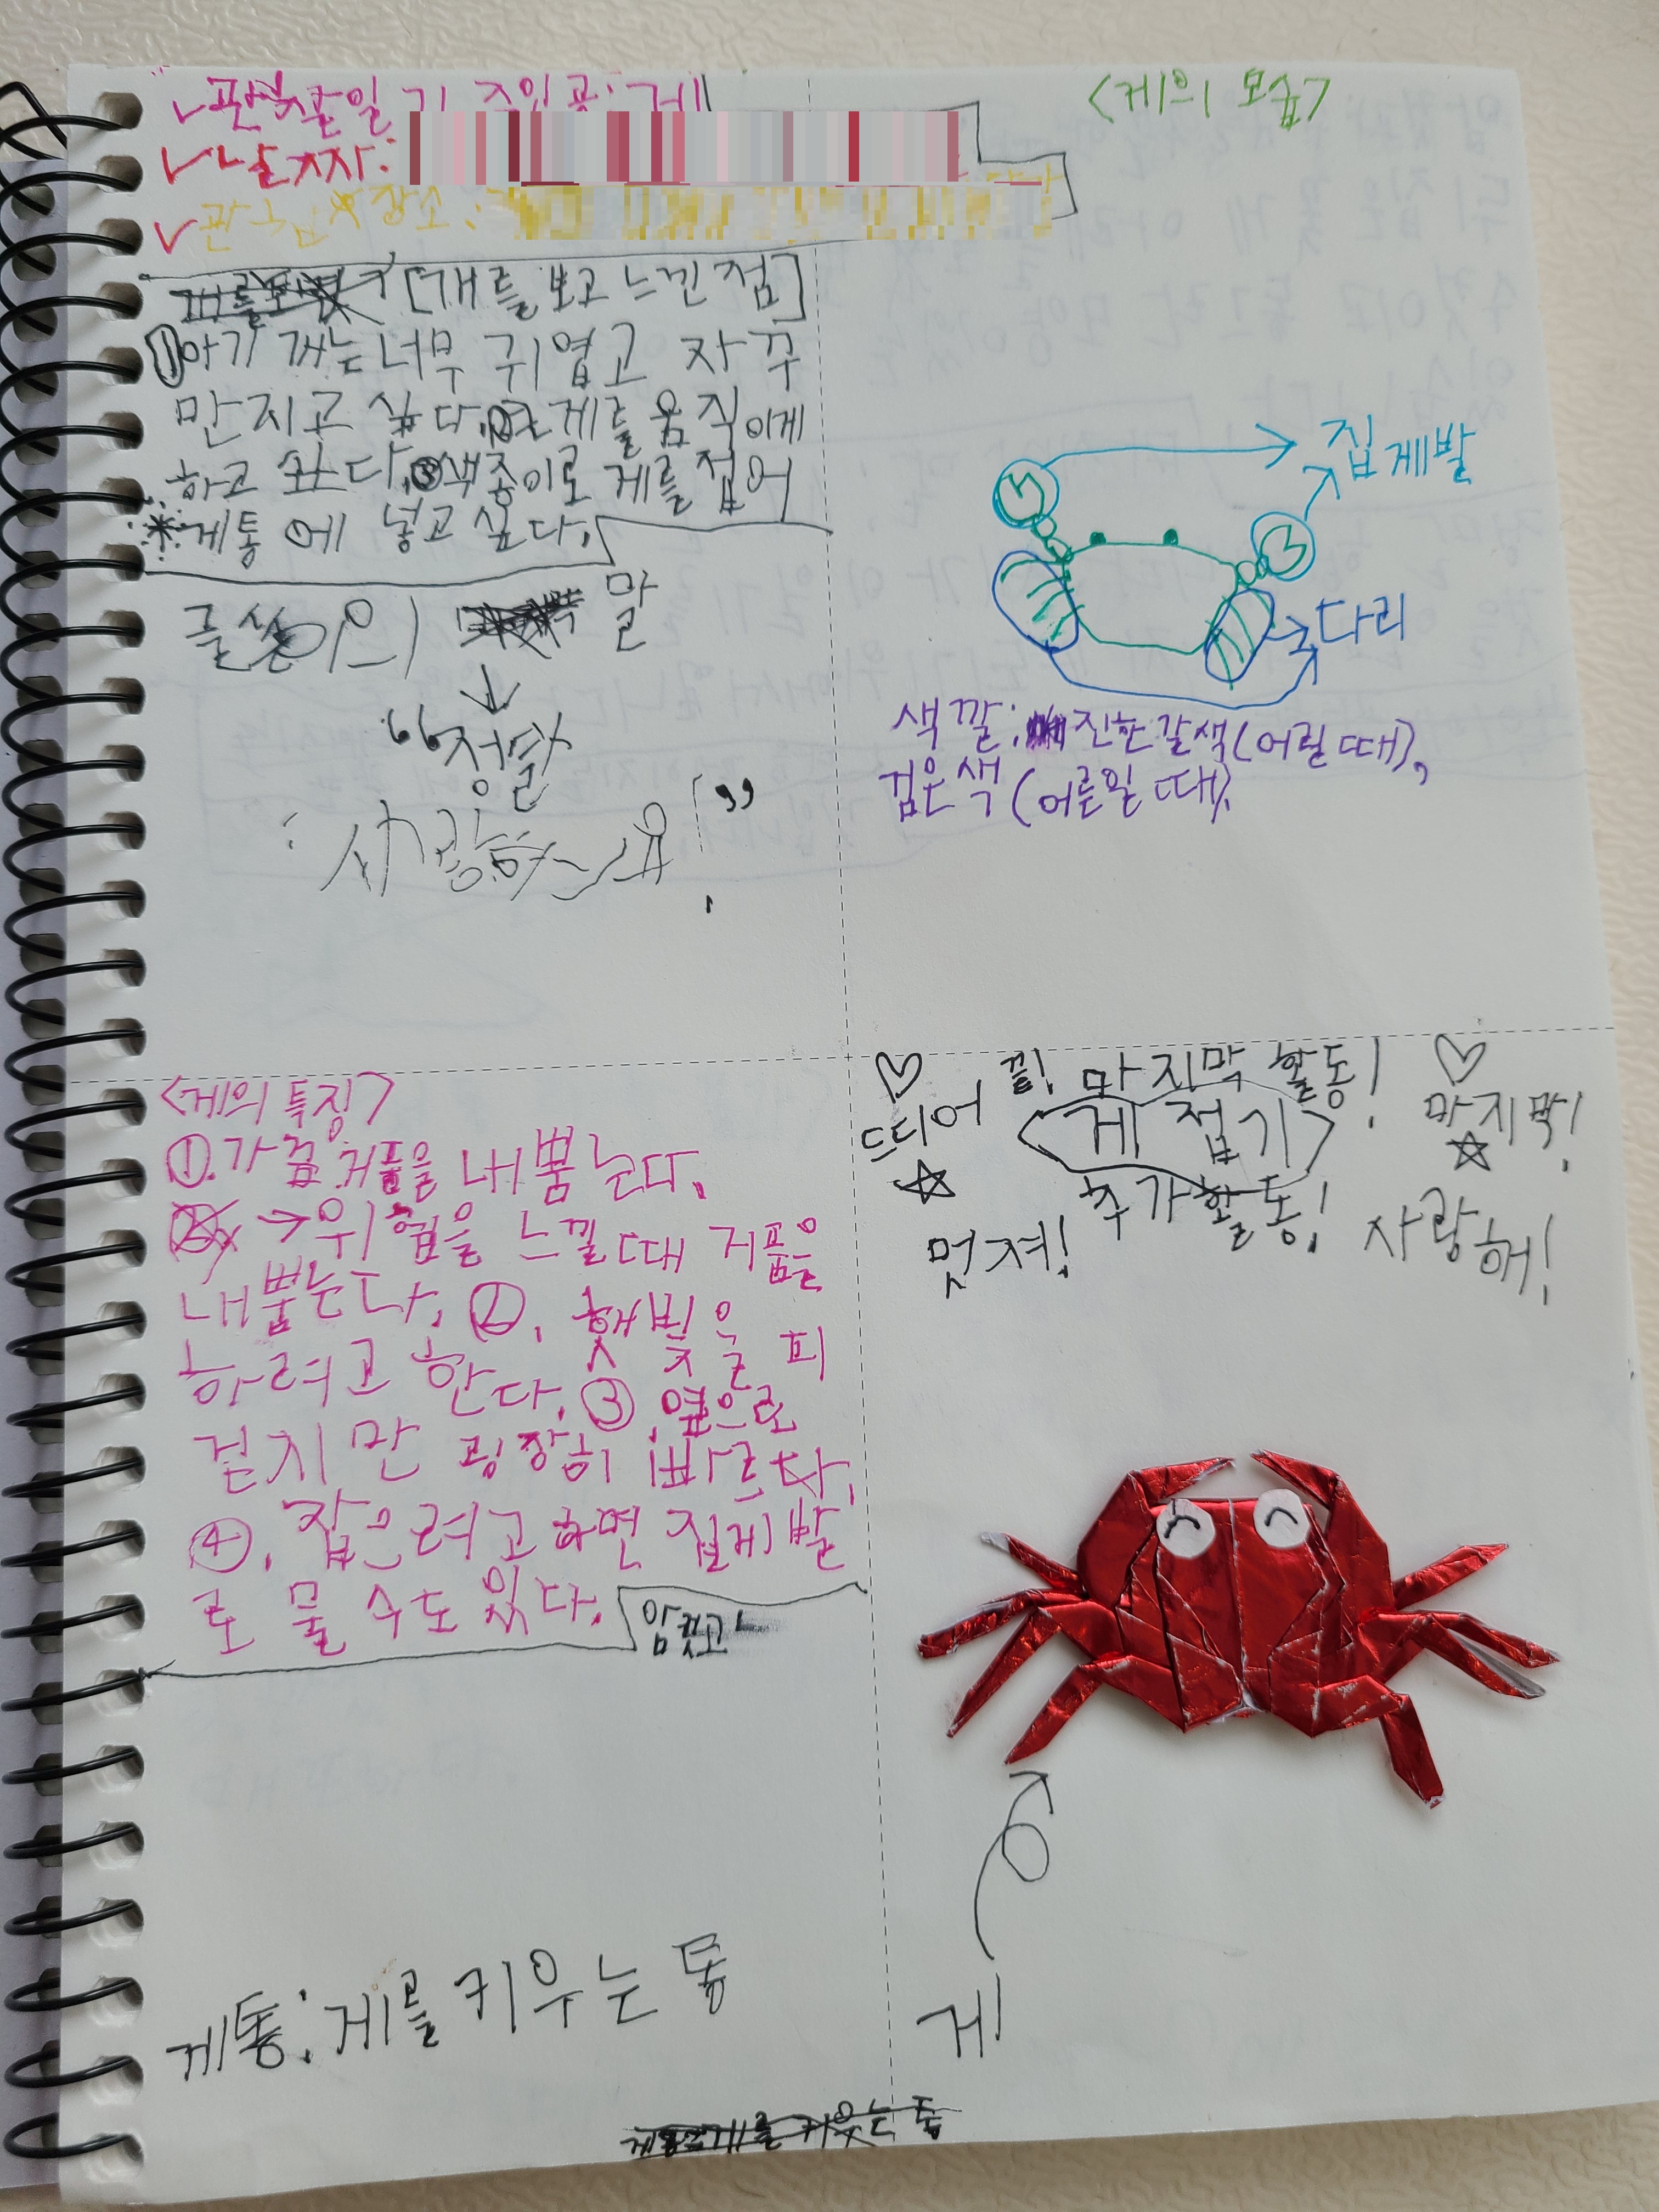 ✓관찰일기 주인공: 게
✓날짜:
✓관찰 장소:
[개를 보고 느낀 점]
①아기 게는 너무 귀엽고 자꾸
만지고 싶다. ② 게를 움직이게
하고 싶다. ③색종이로 게를 접어
※게통에 넣고 싶다.
글쓴이의 말
↓
“정말
사랑해요!”
<게의 모습>
집게발
다리
색깔: 진한 갈색(어릴 때),
검은색(어른일 때).
<게의 특징>
①. 가끔 거품을 내뿜는다.
→위험을 느낄 때 거품을
내뿜는다. ②. 햇빛을 피
하려고 한다. ③. 옆으로
걷지만 굉장히 빠르다.
④. 잡으려고 하면 집게발
로 물 수도 있다.
게통: 게를 키우는 통
♡ 드디어 끝! 마지막 활동! ♡
게 접기
마지막!
☆ 추가활동! ☆
멋져! 사랑해!
게
게를 키우는 통